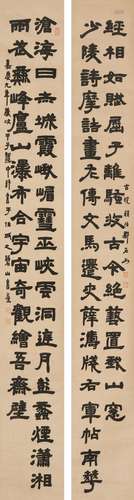 少陵詩摩詰畫左傳文馬遷史薛濤箋右軍帖南華
經相如賦屈子離騷收古今絕藝置我山窗
滄海日赤城霞峨嵋雪巫峽雲洞庭月彭蠡煙瀟湘
雨武夷峰廬山瀑布合宇宙奇觀繪吾齋壁
嘉慶九年歲次甲子